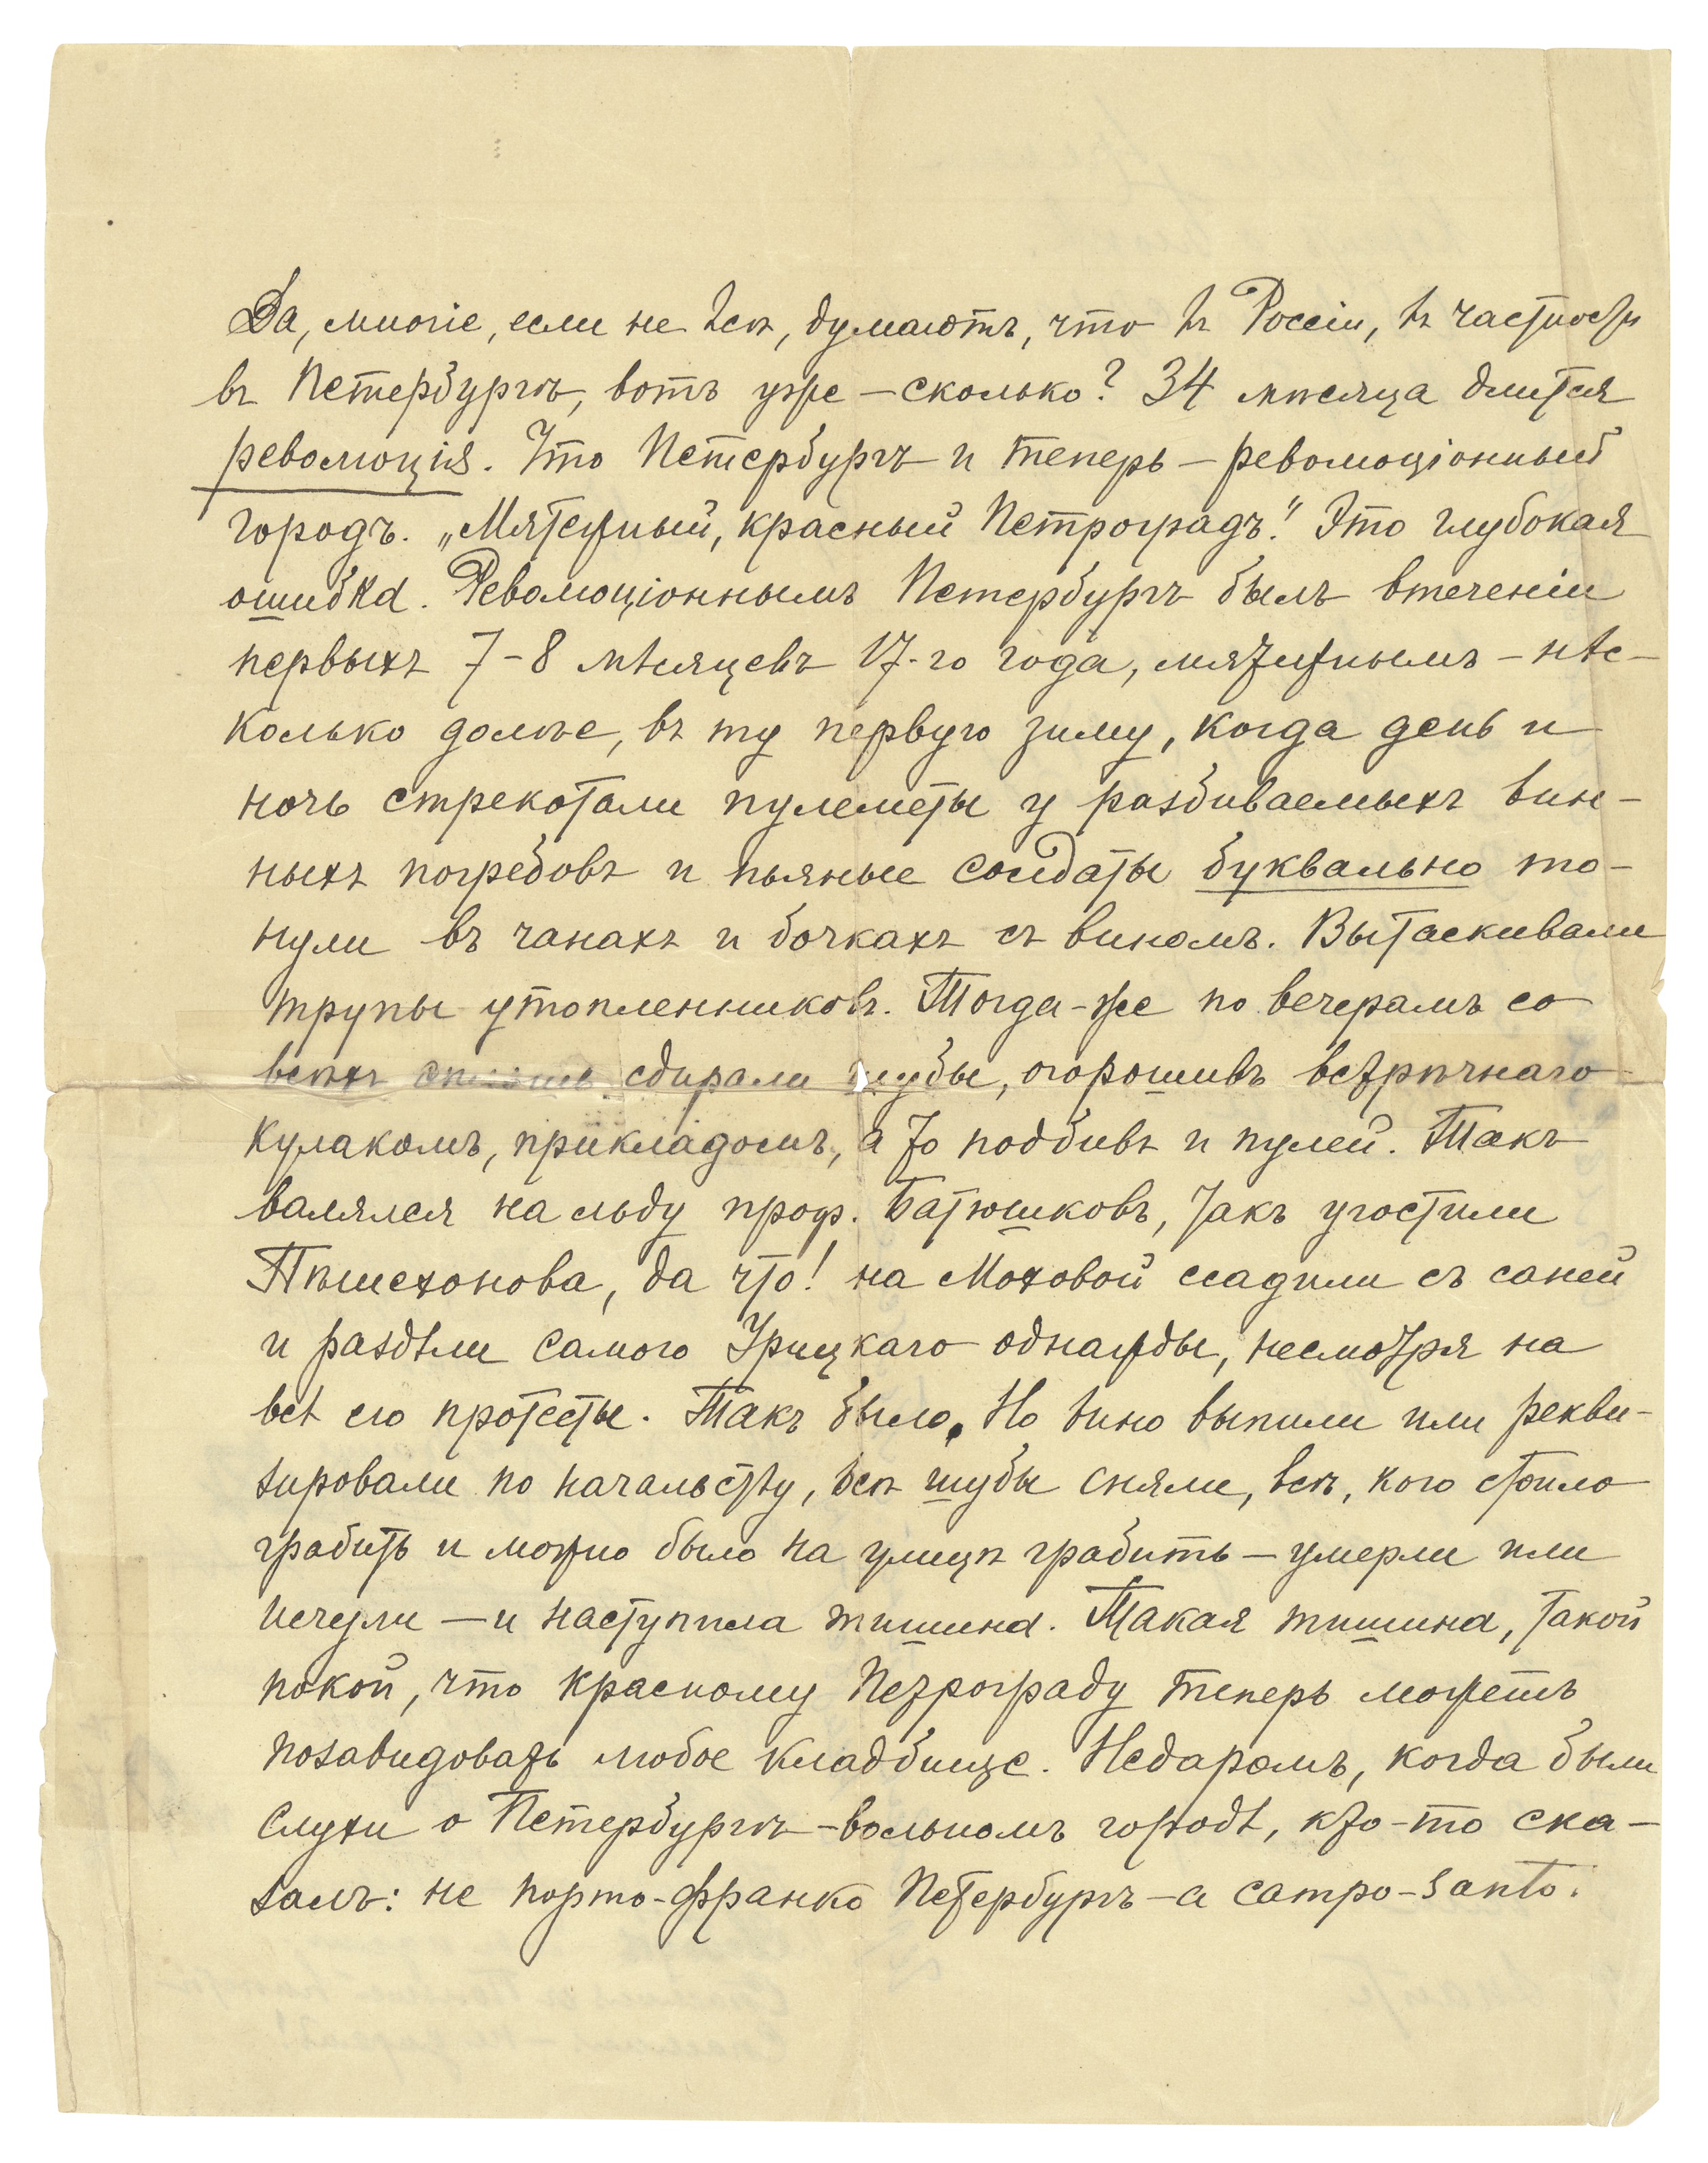 Да, многіе, если не всѣ, думаютъ, что въ Россіи, въ частности
въ Петербургѣ, вотъ уже – сколько? 34 мѣсяца длится
революція. Что Петербургъ и теперь – революціонный
городъ. „Мятежный, красный Петроградъ." Это глубокая
ошибка. Революціоннымъ Петербургъ былъ втеченіи
первыхъ 7–8 мѣсяцевъ 17-го года, мятежнымъ – нѣс-
колько долѣе, въ ту первую зиму, когда день и
ночь стрекотали пулеметы у разбиваемыхъ вин-
ныхъ погребовъ и пьяные солдаты буквально то-
нули въ чанахъ и бочкахъ съ виномъ. Вытаскивали
трупы утопленниковъ. Тогда-же по вечерамъ со
всѣхъ сдирали шубы, огорошивъ встрѣчнаго
кулакомъ, прикладомъ, а то подбивъ и пулей. Такъ
валялся на льду проф. Батюшковъ, такъ угостили
Пѣшехонова, да что! на Моховой ссадили съ саней
и раздѣли самого Урицкаго однажды, несмотря на
всѣ его протесты. Такъ было. Но вино выпили или рекви-
зировали по начальству, всѣ шубы сняли, всѣ, кого стоило
грабить и можно было на улицѣ грабить – умерли или
исчезли – и наступила тишина. Такая тишина, такой
покой, что красному Петрограду теперь можетъ
позавидовать любое кладбище. Недаромъ, когда были
слухи о Петербургѣ – вольномъ городѣ, кто-то ска-
залъ: не порто-франко Петербургъ – а campo-santo.